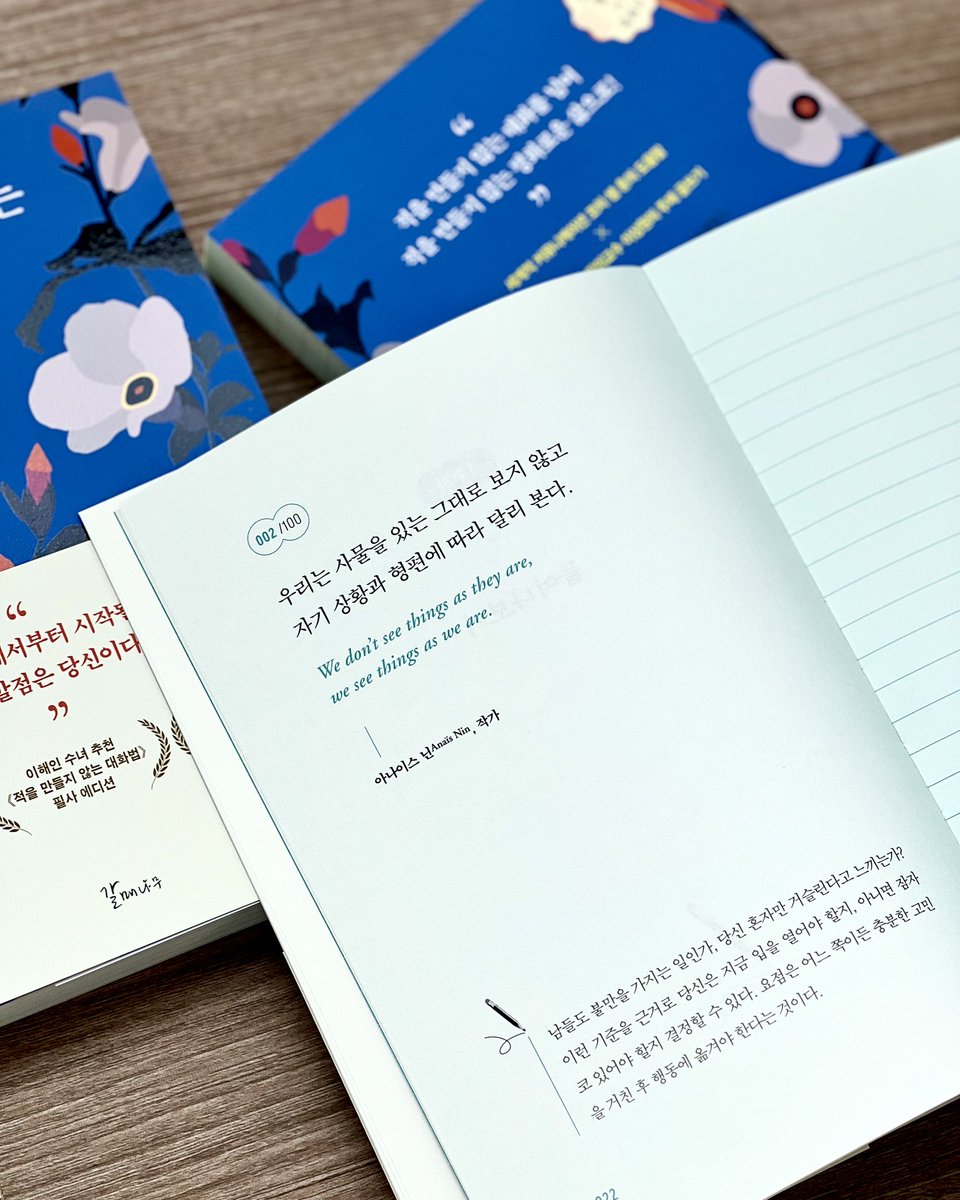 는
“
적을 만들지 않는 대화를 넘어
적을 만들지 않는 평화로운 삶으로!
”
×
“
서부터 시작
점은 당신이다
”
이해인 수녀 추천
《적을 만들지 않는 대화법》
필사 에디션
갈매나무
002/100
우리는 사물을 있는 그대로 보지 않고
자기 상황과 형편에 따라 달리 본다.
We don’t see things as they are,
we see things as we are.
아나이스 닌Anaïs Nin, 작가
남들도 불만을 가지는 일인가, 당신 혼자만 거슬린다고 느끼는가?
이런 기준을 근거로 당신은 지금 입을 열어야 할지, 아니면 잠자
코 있어야 할지 결정할 수 있다. 요점은 어느 쪽이든 충분한 고민
을 거친 후 행동에 옮겨야 한다는 것이다.
022